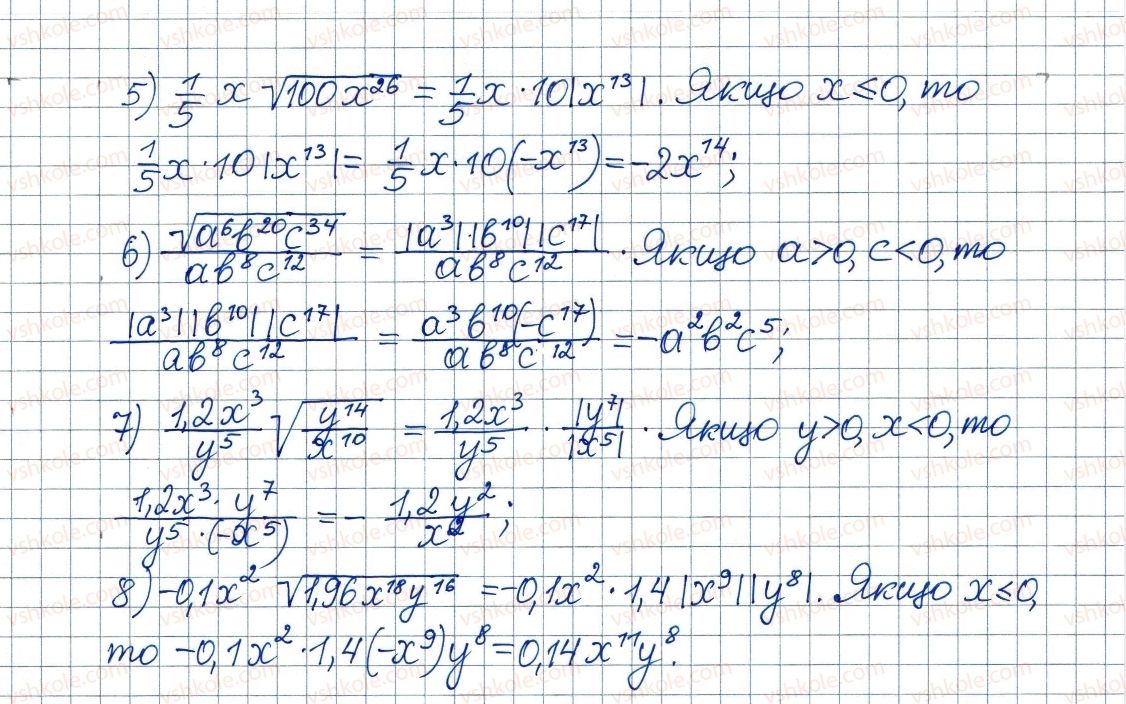 5) 1/5 x √100x²⁶ = 1/5 x · 10|x¹³|. Якщо x ≤ 0, то
1/5 x · 10|x¹³| = 1/5 x · 10(-x¹³) = -2x¹⁴;
6) √a⁶b²⁰c³⁴ / ab⁸c¹² = |a³||b¹⁰||c¹⁷| / ab⁸c¹². Якщо a>0, c<0, то
|a³||b¹⁰||c¹⁷| / ab⁸c¹² = a³b¹⁰(-c¹⁷) / ab⁸c¹² = -a²b²c⁵;
7) 1,2x³/y⁵ √y¹⁴/x¹⁰ = 1,2x³/y⁵ · |y⁷|/|x⁵|. Якщо y>0, x<0, то
1,2x³ · y⁷ / y⁵ · (-x⁵) = - 1,2y²/x²;
8) -0,1x² √1,96x¹⁸y¹⁶ = -0,1x² · 1,4|x⁹||y⁸|. Якщо x≤0,
то -0,1x² · 1,4(-x⁹)y⁸ = 0,14x¹¹y⁸.